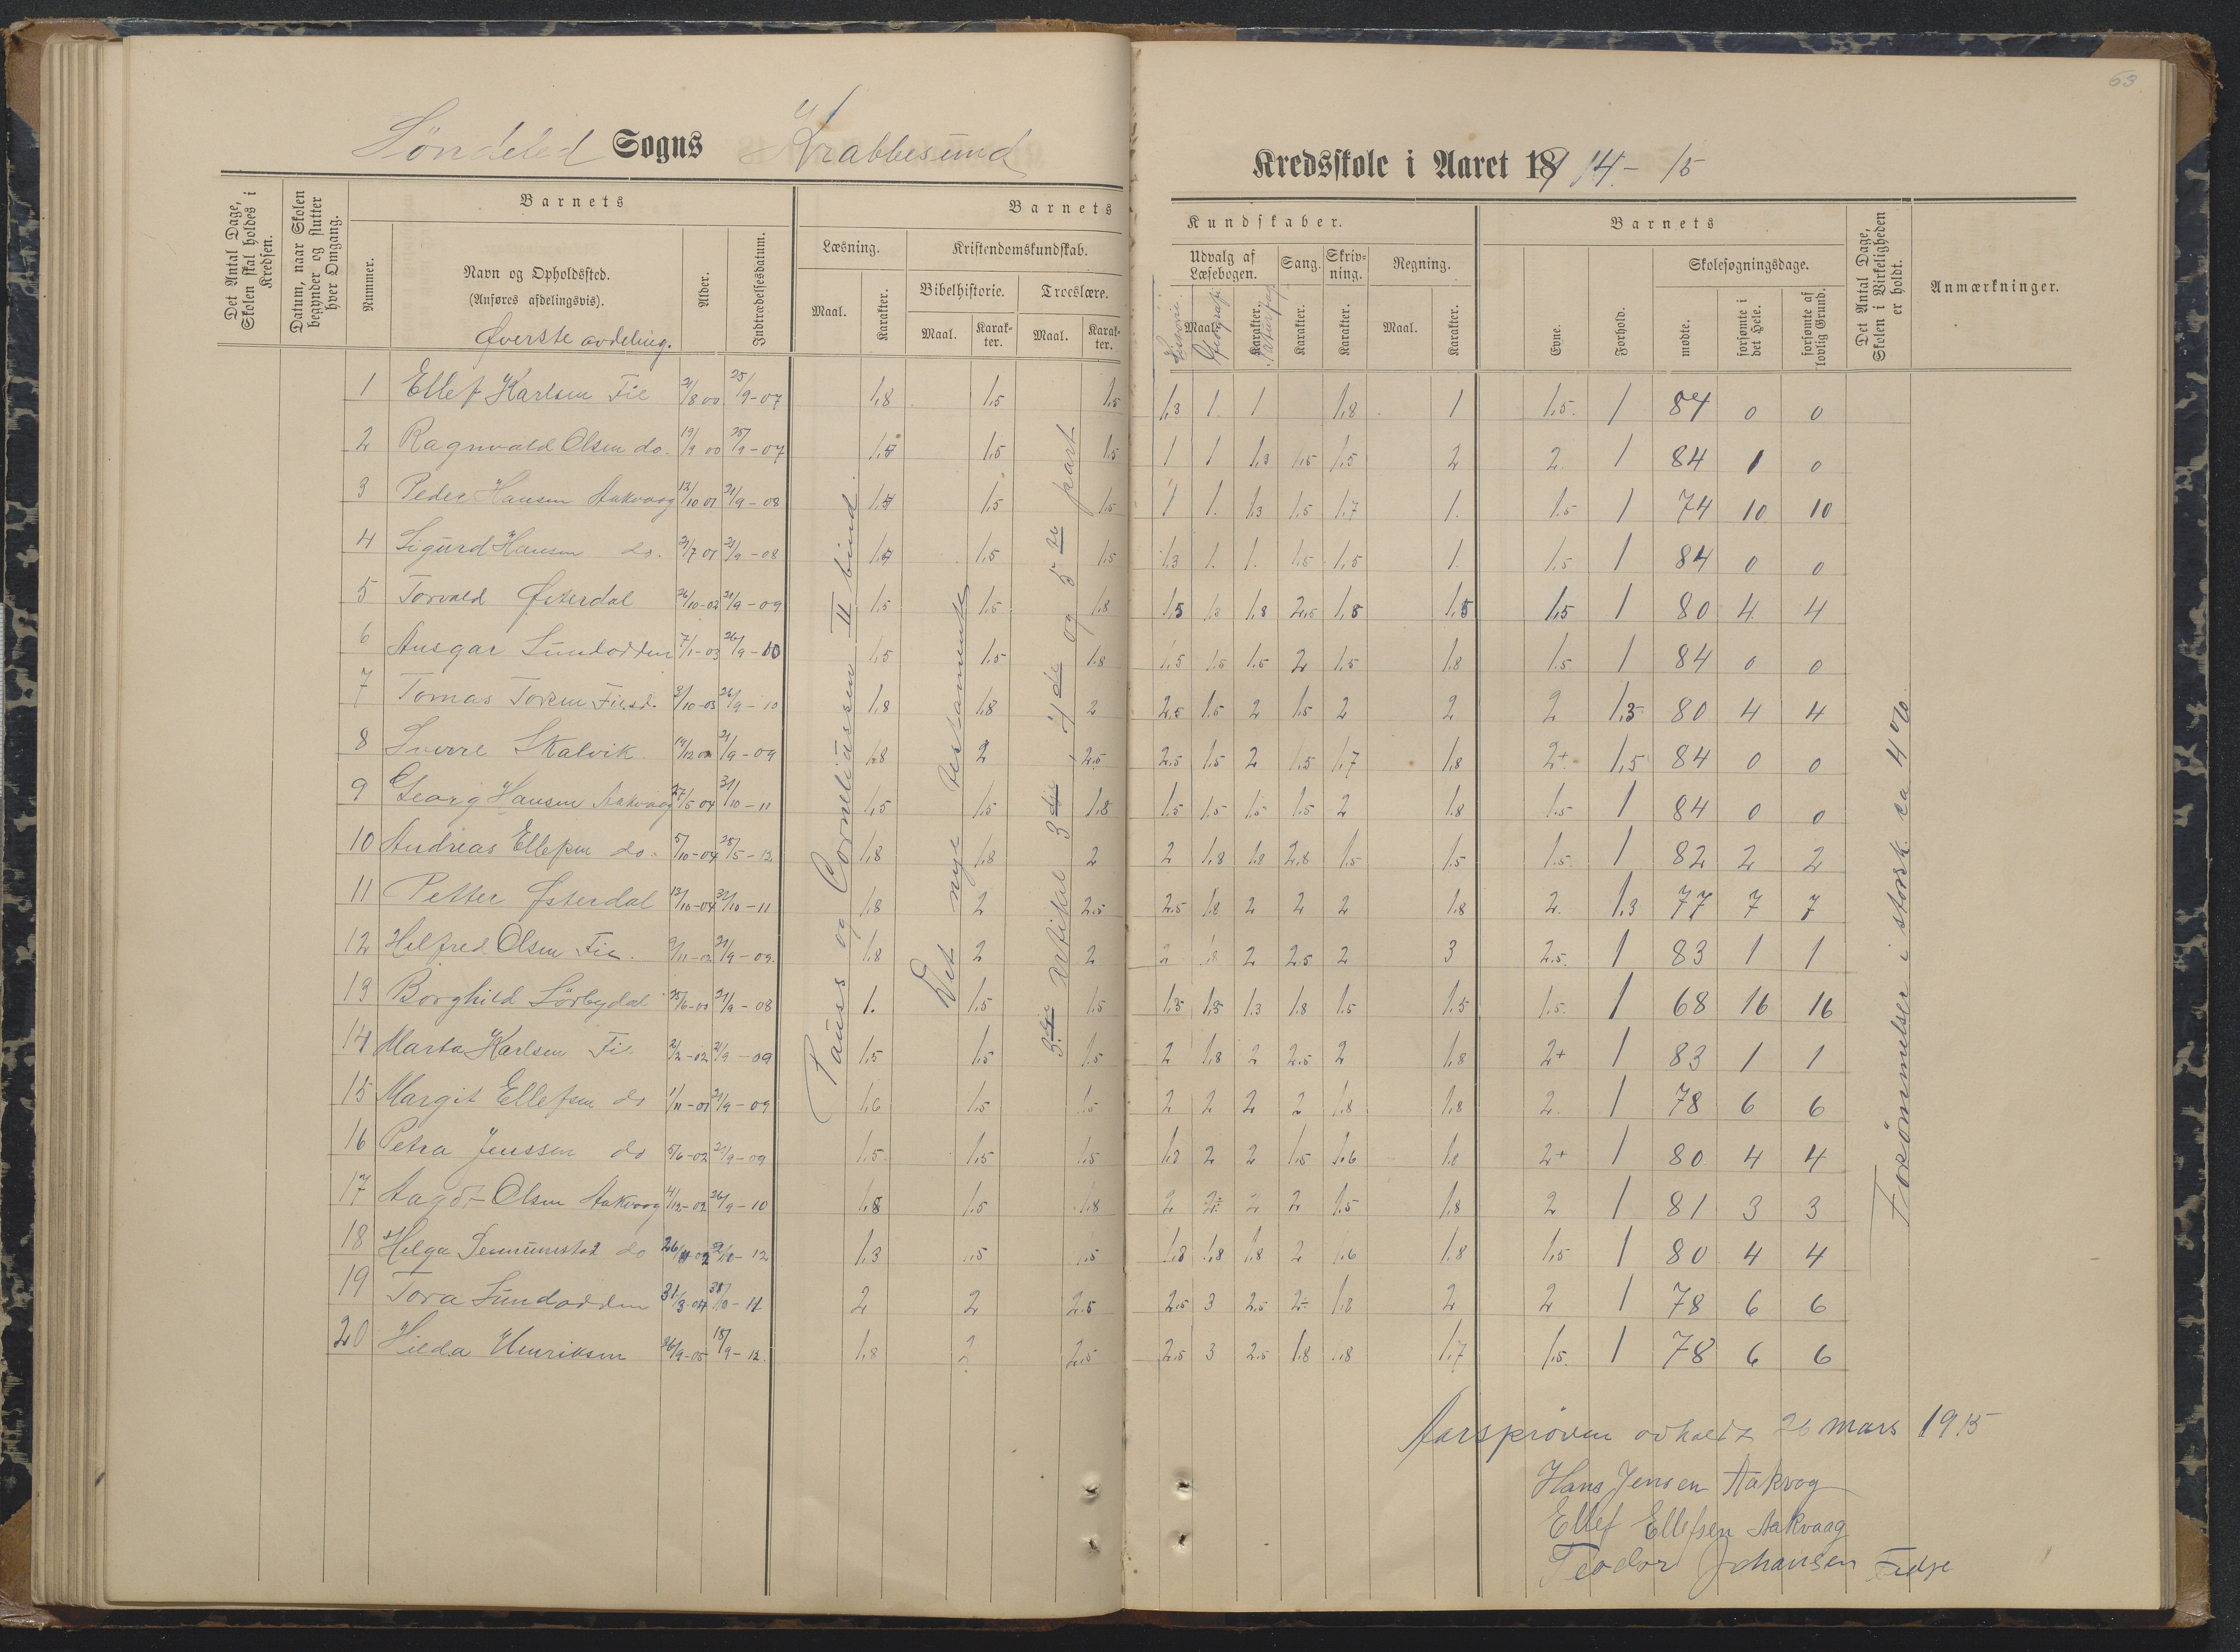 63
Søndeled Sogns Krabbesund Kredsskole i Aaret 1914-15
Det Antal Dage, Skolen skal holdes i Kredsen.
Datum, naar Skolen begynder og slutter hver Omgang.
Barnets
Nummer.
Navn og Opholdssted.
(Anføres afdelingsvis).
Øverste avdeling.
Alder.
Indtrædelsesdatum.
Barnets Kundskaber.
Læsning.
Maal.
Karakter.
Kristendomskundskab.
Bibelhistorie.
Maal.
Karakter.
Troeslære.
Maal.
Karakter.
Udvalg af Læsebogen.
Maal.
Karakter.
Historie
Geografi
Naturfag
Sang.
Karakter.
Skrivning.
Karakter.
Regning.
Maal.
Karakter.
Barnets
Evne.
Forhold.
Skolesøgningsdage.
mødte.
forsømte i det Hele.
forsømte af lovlig Grund.
Det Antal Dage, Skolen i Virkeligheden er holdt.
Anmærkninger.
1 Ellef Karlsen Fie 21/8 00 25/9-07 1,8 1,5 1,5 1,3 1 1 1,8 1 1,5 1 84 0 0
2 Ragnvald Olsen do. 19/9 00 25/9-07 1,5 1,5 1 1 1,3 1,5 1,5 2 2 1 84 1 0
3 Peder Hansen Aakvaag 12/10 01 21/9-08 1,5 1,5 1 1 1,3 1,5 1,7 1 1,5 1 74 10 10
4 Sigurd Hansen do. 21/9-08 1,5 1,5 1,3 1 1 1,5 1,5 1 1,5 1 84 0 0
5 Torvald Østerdal 26/10-02 21/9-09 1,5 1,5 1,8 1,5 1,8 1,8 2,5 1,8 1,5 1,5 1 80 4 4
6 Ansgar Sundodden 7/1-03 26/9-10 1,5 1,5 1,8 1,5 1,5 1,5 2 1,5 1,8 1,5 1 84 0 0
7 Tomas 3/10-03 26/9-10 1,8 1,8 2 2,5 1,5 2 1,5 2 2 2 1,3 80 4 4
8 Sverre Skalvik 21/9-09 1,8 2 2,5 2,5 1,5 2 1,5 1,7 1,8 2+ 1,5 84 0 0
9 Georg Hansen Aakvaag 27/5 04 31/10-11 1,5 1,5 1,8 1,5 1,5 1,5 1,5 2 1,8 1,5 1 84 0 0
10 Andreas Ellefsen do. 5/10-04 25/5-12 1,8 1,8 2 2 1,8 1,8 2,8 1,5 1,5 1,5 1 82 2 2
11 Petter Østerdal 13/10-04 31/10-11 1,8 2 2,5 2,5 1,8 2 2 2 1,8 2 1,3 77 7 7
12 Helfred Olsen Fie. 9/11-02 21/9-09 1,8 2 2 2 1,8 2 2,5 2 3 2,5 1 83 1 1
13 Borghild Sørbydal 25/6-00 21/9-08 1. 1,5 1,5 1,3 1,5 1,3 1,8 1,5 1,5 1,5 1 68 16 16
14 Marta Karlsen Fie 2/2-02 21/9-09 1,5 1,5 1,5 2 1,8 2 2,5 2 1,8 2+ 1 83 1 1
15 Margit Ellefsen do 1/11-01 21/9-09 1,6 1,5 1,5 2 2 2 2 1,8 1,8 2 1 78 6 6
16 Petra Jenssen do 5/6-02 21/9-09 1,5 1,5 1,5 1,8 2 2 1,5 1,6 1,8 2+ 1 80 4 4
17 Aagot Olsen Aakvaag 4/12-02 26/9-10 1,8 1,5 1,8 2 2 2 2 1,5 1,8 2 1 81 3 3
18 Helga do 1,3 1,5 1,5 1,8 1,8 1,8 2 1,6 1,8 1,5 1 80 4 4
19 Tora Sundodden 31/3-04 31/10-11 2 2 2,5 2,5 3 2,5 2 1,8 2 2 1 78 6 6
20 Hilda Henriksen 26/9-05 18/9-12 1,8 2 2,5 2,5 3 2,5 1,8 1,8 1,7 1,5 1 78 6 6
Pauss og Corneliussen II bind
Det nye testamente
3dje artikel 3dje, 4de og 5te part
Forsømmelser i storsk. ca 4 %.
Aarsprøven avholdt 26 mars 1915
Hans Jensen Aakvog
Ellef Ellefsen Aakvaag
Teodor Johansen